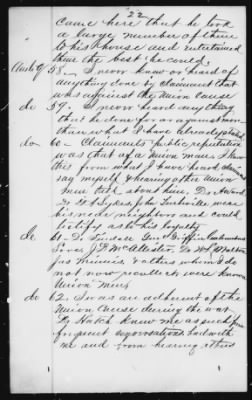 22
came here that he took
a large number of them
to his house and entertained
them the best he could.
58 - I never knew or heard of
anything done by claimant that
was against the Union Cause
do 59. I never heard anything
that he done for or against more
than what I have already stated
do 60 - Claimants public reputation
was that of a Union man, I know
this from what I have heard
say myself & hearing other Union
men talk about him. Dr
Dr Sykes John were
his near neighbors and could
testify as to his loyalty
61. Dr Gen'l Griffin Columbus
J. McCallister Dr
Jas & others whom I do
not now recollect were known
Union men
do 62. I was an adherent of the
Union Cause during the war
Dr Hatch knew me as such from
frequent conversations had with
me and from hearing others